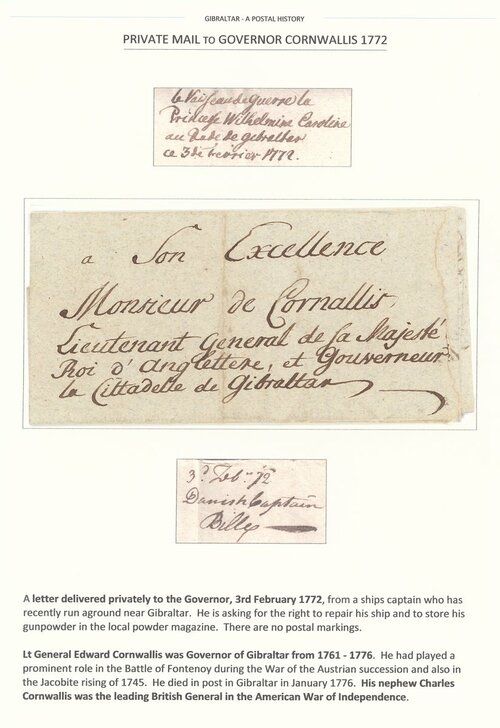 GIBRALTAR - A POSTAL HISTORY
PRIVATE MAIL TO GOVERNOR CORNWALLIS 1772
le Vaisseau de Guerre la
Princesse Wilhelmine Caroline
au Rade de gibraltar
ce 3 de fevrier 1772.
a Son Excellence
Monsieur de Cornallis
Lieutenant General de sa Majesté
Roi d'Anglettere, et Gouverneur
la Cittadelle de Gibraltar
3d. Feb. 72
Danish Captain
Bille
A letter delivered privately to the Governor, 3rd February 1772, from a ships captain who has
recently run aground near Gibraltar. He is asking for the right to repair his ship and to store his
gunpowder in the local powder magazine. There are no postal markings.
Lt General Edward Cornwallis was Governor of Gibraltar from 1761 - 1776. He had played a
prominent role in the Battle of Fontenoy during the War of the Austrian succession and also in
the Jacobite rising of 1745. He died in post in Gibraltar in January 1776. His nephew Charles
Cornwallis was the leading British General in the American War of Independence.